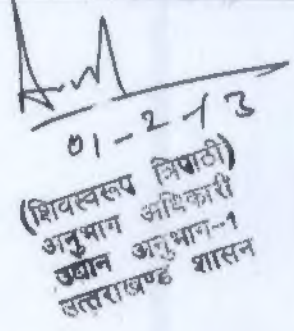 01-2-13
(शिवस्वरूप त्रिपाठी)
अनुभाग अधिकारी
उद्यान अनुभाग-1
उत्तराखण्ड शासन